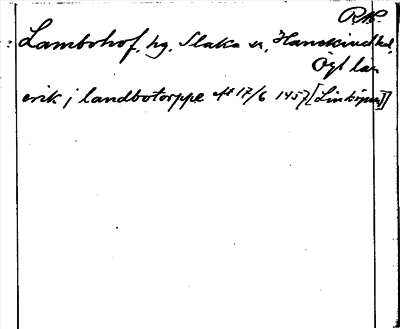 RAP.
Lambohof, hg, Slaka sn, Hanekinds hd,
Ögl län
erik j landbotorppe At 17/6 1457 [Linköping]